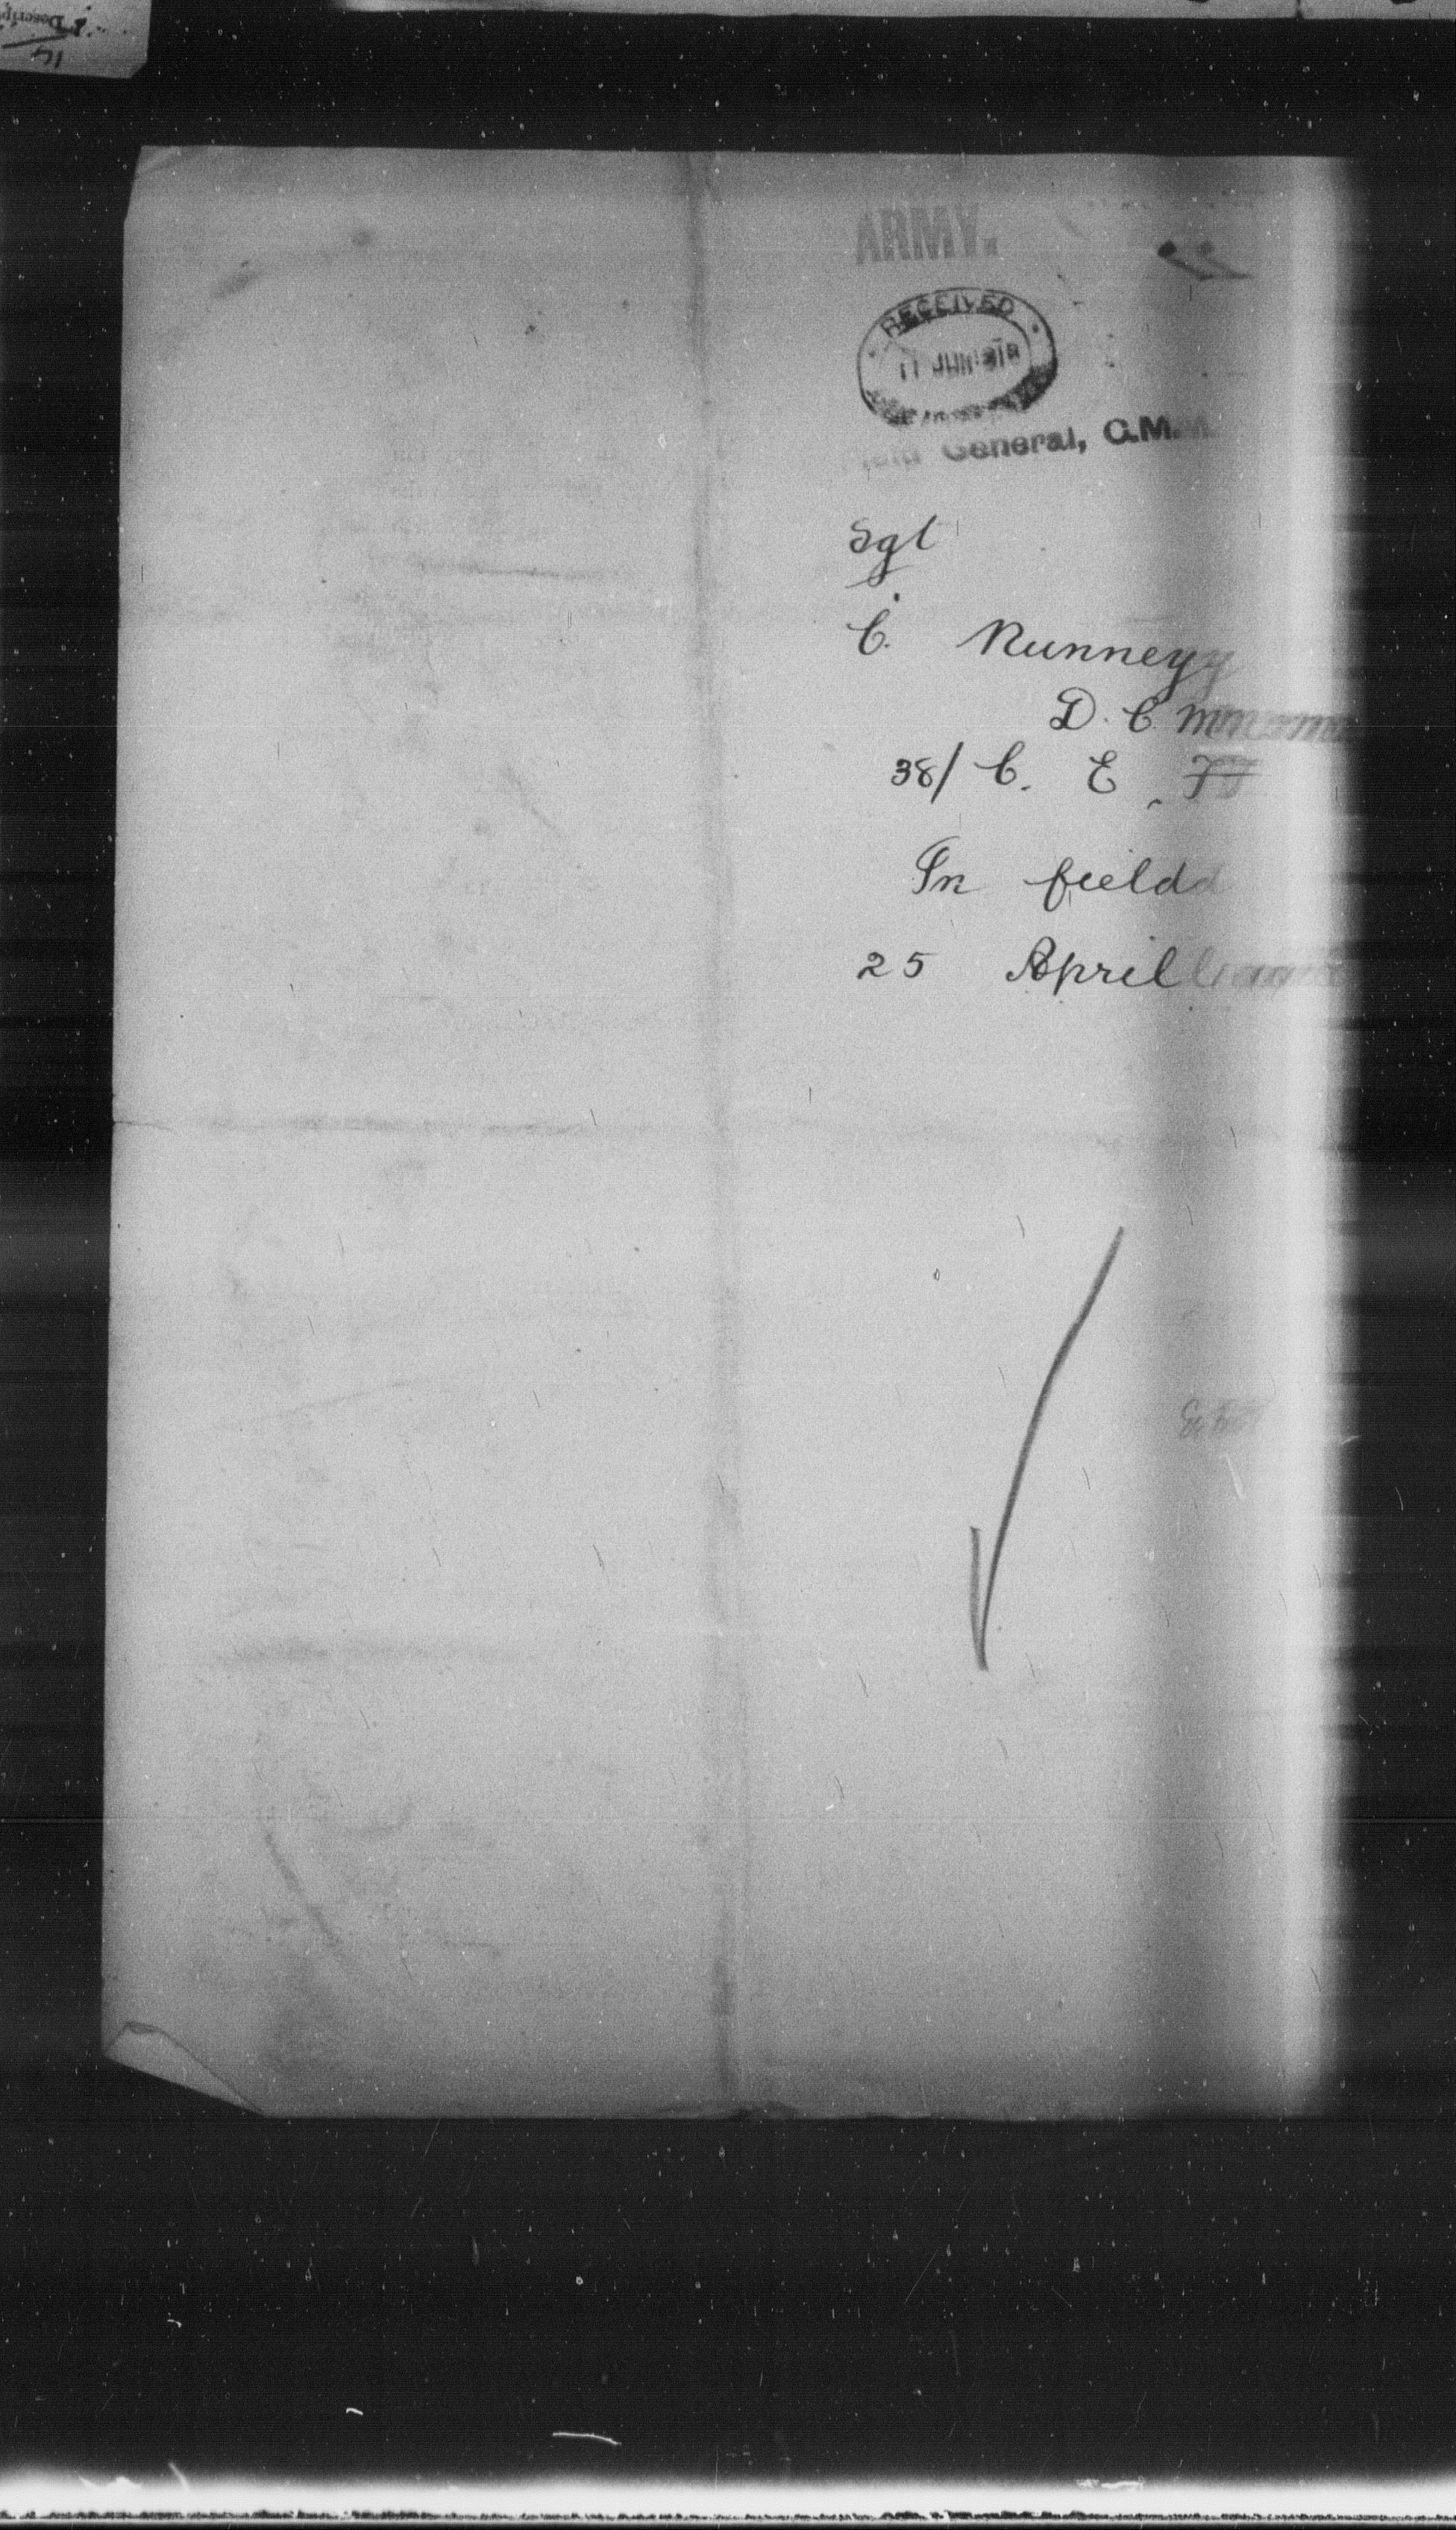 Descrip
ARMY.
RECEIVED
11 JUN 1918
General, C.M.
Sgt
C. Runney
D. C. M
38/ C. E. F
In field
25 April